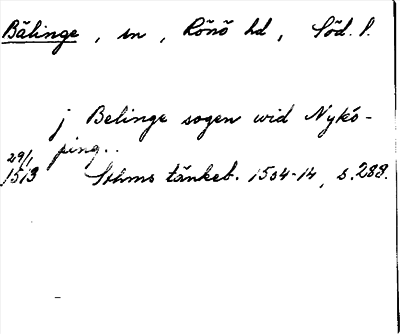 Bälinge, sn, Rönö hd, Söd. l.
j Belinge sogen wid Nykö-
ping..
29/1
1513 Sthms tänkeb. 1504-14, s. 288.